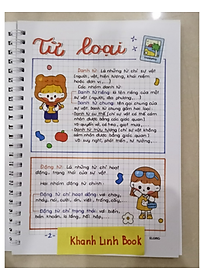 Từ loại
Danh từ: Là những từ chỉ sự vật
(người, vật, hiện tượng, khái niệm
hoặc đơn vị,...)
Các nhóm danh từ:
- Danh từ riêng: là tên riêng của sự
vật (người, địa phương,...)
- Danh từ chung: tên gọi chung của
sự vật. Danh từ chung gồm hai loại:
- Danh từ cụ thể (chỉ sự vật có thể cảm
nhận được bằng các giác quan):
- Danh từ trừu tượng (chỉ sự vật không
cảm nhận được bằng các giác quan):
Động từ: Là những từ chỉ hoạt
động, trạng thái của sự vật.
Hai nhóm động từ chính:
- Động từ chỉ hoạt động:
chạy, nhảy,
- Động từ chỉ trạng thái: vui, buồn,
-2-
Khánh Linh Book